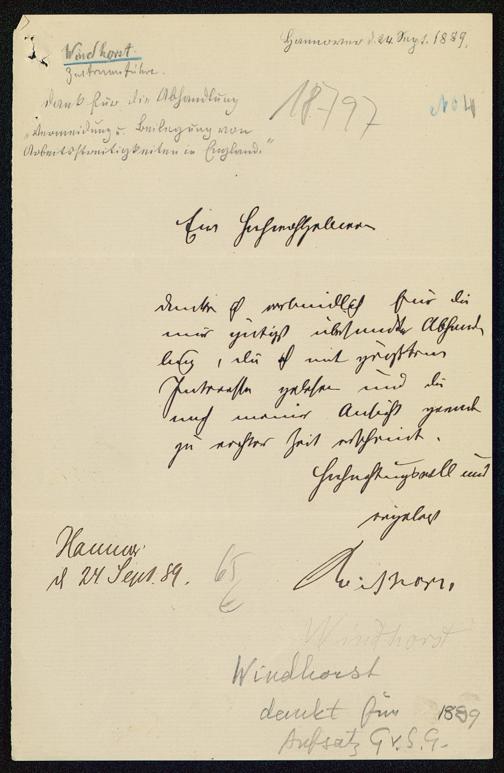 Hannover d. 24 Sept. 1889.
Windhorst
Zentrumsführer.
dankt für die Abhandlung
"Vermeidung u. Beilegung von
Arbeitsstreitigkeiten in England."
18797
No 4
Euer Hochwohlgeboren
danke ich verbindlich für die
mir gütigst übersandte Abhand
lung, die ich mit größtem
Interesse gelesen und die
nach meiner Ansicht gerade
zu rechter Zeit erscheint.
Hochachtungsvoll und
ergebenst
Windthorst.
Hannov.
d 24 Sept. 89.
65
Windhorst
Windhorst
dankt für
Aufsatz G v. S. G.
1889